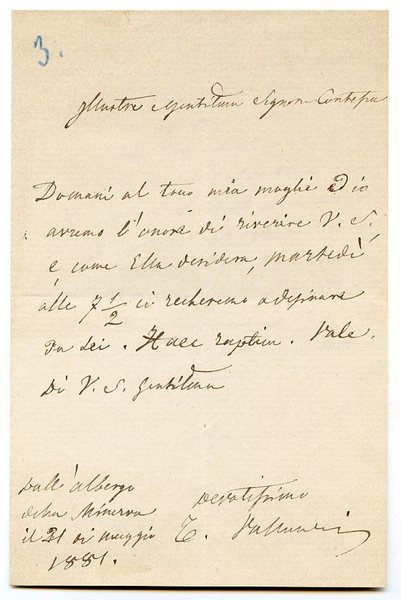 3.
Illustre e gentilma Signora Contessa
Domani al tocco mia moglie ed io
avremo l'onore di riverire V. S.
e come Ella desidera, martedì
alle 7 1/2 ci recheremo a desinare
da Lei. Haec raptim. Vale.
Di V. S. gentilma
Dall'albergo
della Minerva
il 21 di maggio
1881.
devotissimo
T. Vallauri